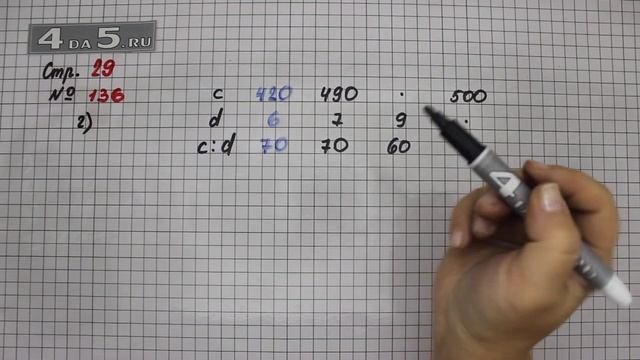 4 DA 5.RU
Стр. 29
№ 136
2)
c 420 490 . 500
d 6 7 9 .
c:d 70 70 60
4